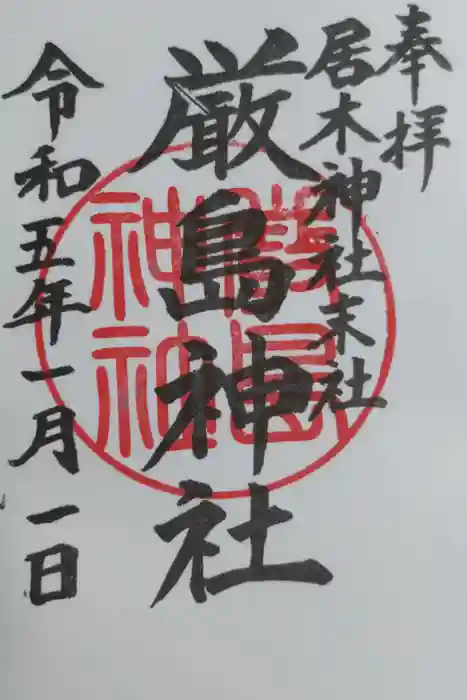 奉拝
居木神社末社
厳島神社
令和五年一月一日